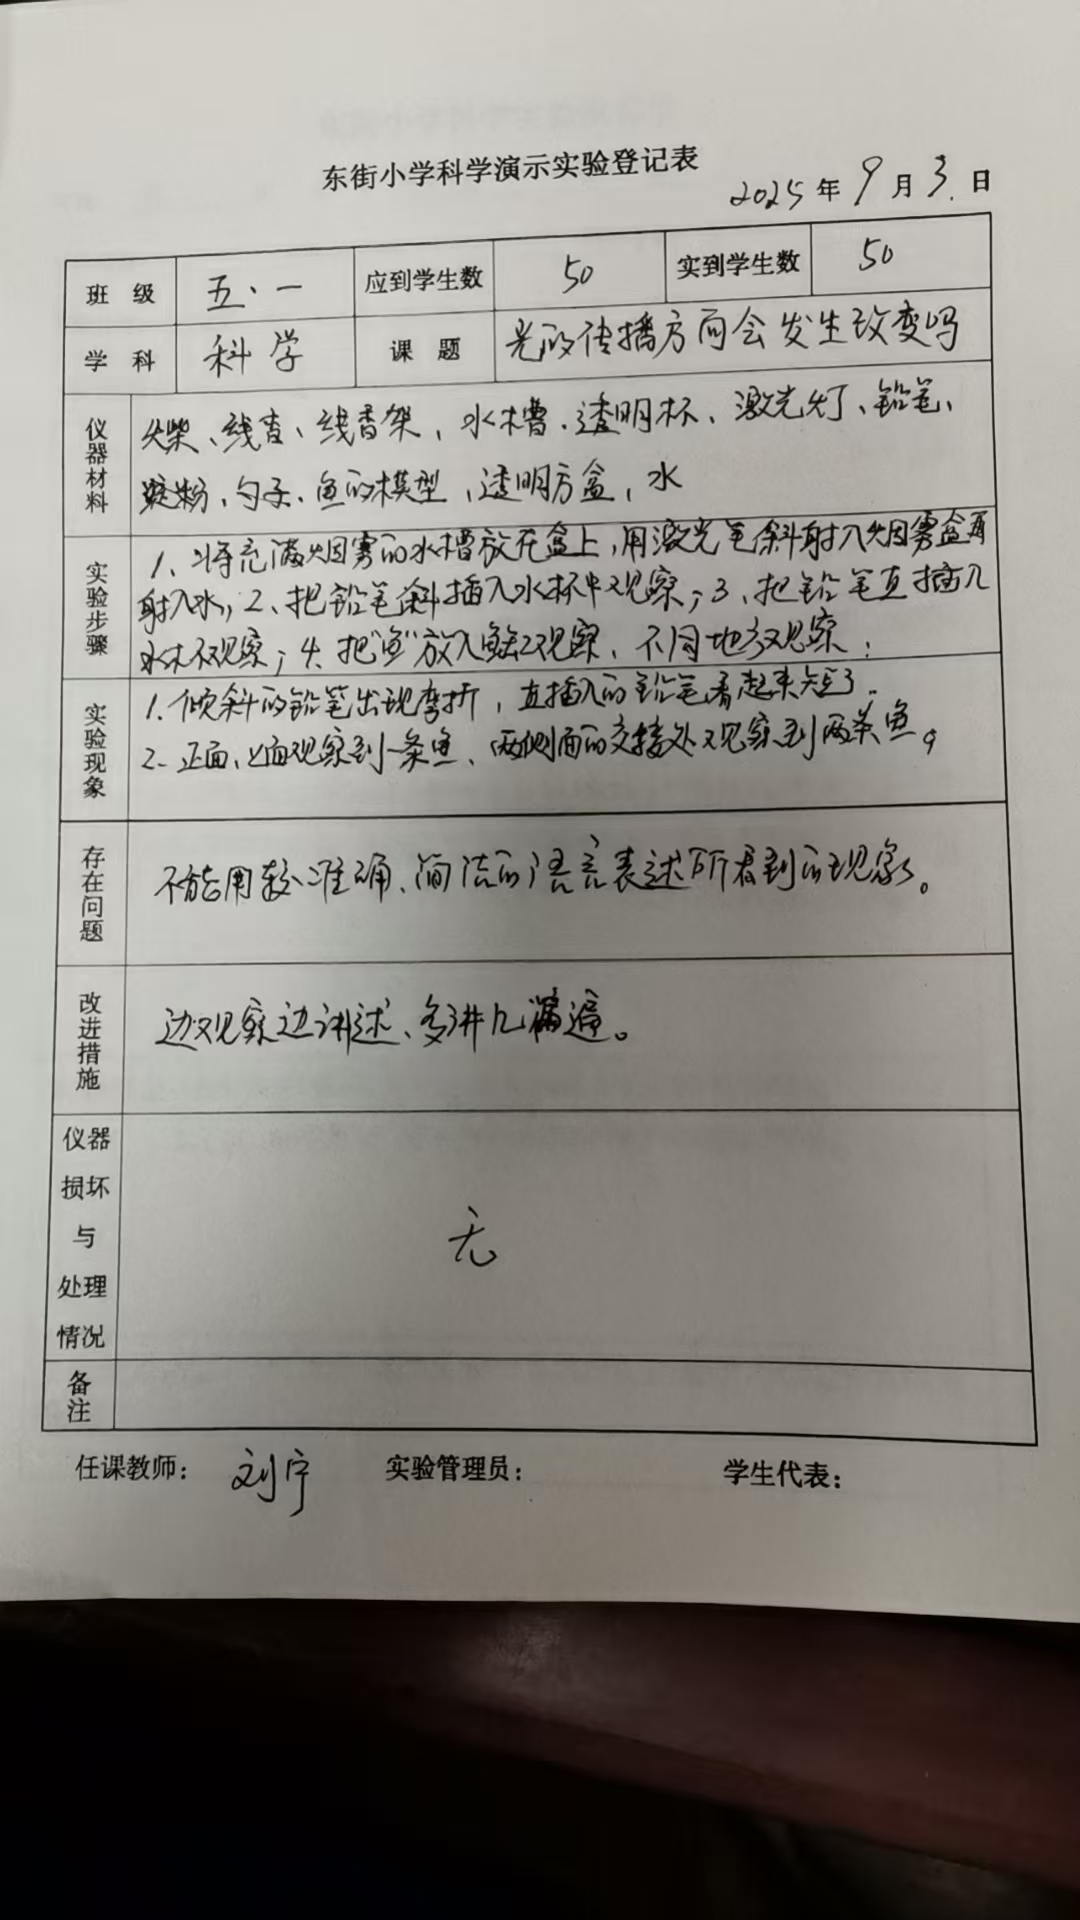 东街小学科学演示实验登记表
2025年9月3日
班 级 五.一 应到学生数 50 实到学生数 50
学 科 科学 课 题 光的传播方向会发生改变吗
仪器材料 火柴、线香、线香架、水槽、透明杯、激光灯、铅笔、
淀粉、勺子、鱼的模型、透明方盒、水
实验步骤 1、将充满烟雾的水槽放在盒上,用激光笔斜射入烟雾盒再
射入水;2、把铅笔斜插入水杯中观察;3、把铅笔直插入
水杯观察;4、把“鱼”放入鱼缸观察,不同地方观察;
实验现象 1.倾斜的铅笔出现弯折,直插入的铅笔看起来短了。
2.正面、上面观察到一条鱼、两侧面的交接处观察到两条鱼。
存在问题 不能用较准确、简洁的语言表述所看到的现象。
改进措施 边观察边讲述、多讲几遍。
仪器损坏与处理情况 无
备注
任课教师: 刘宁 实验管理员: 学生代表: